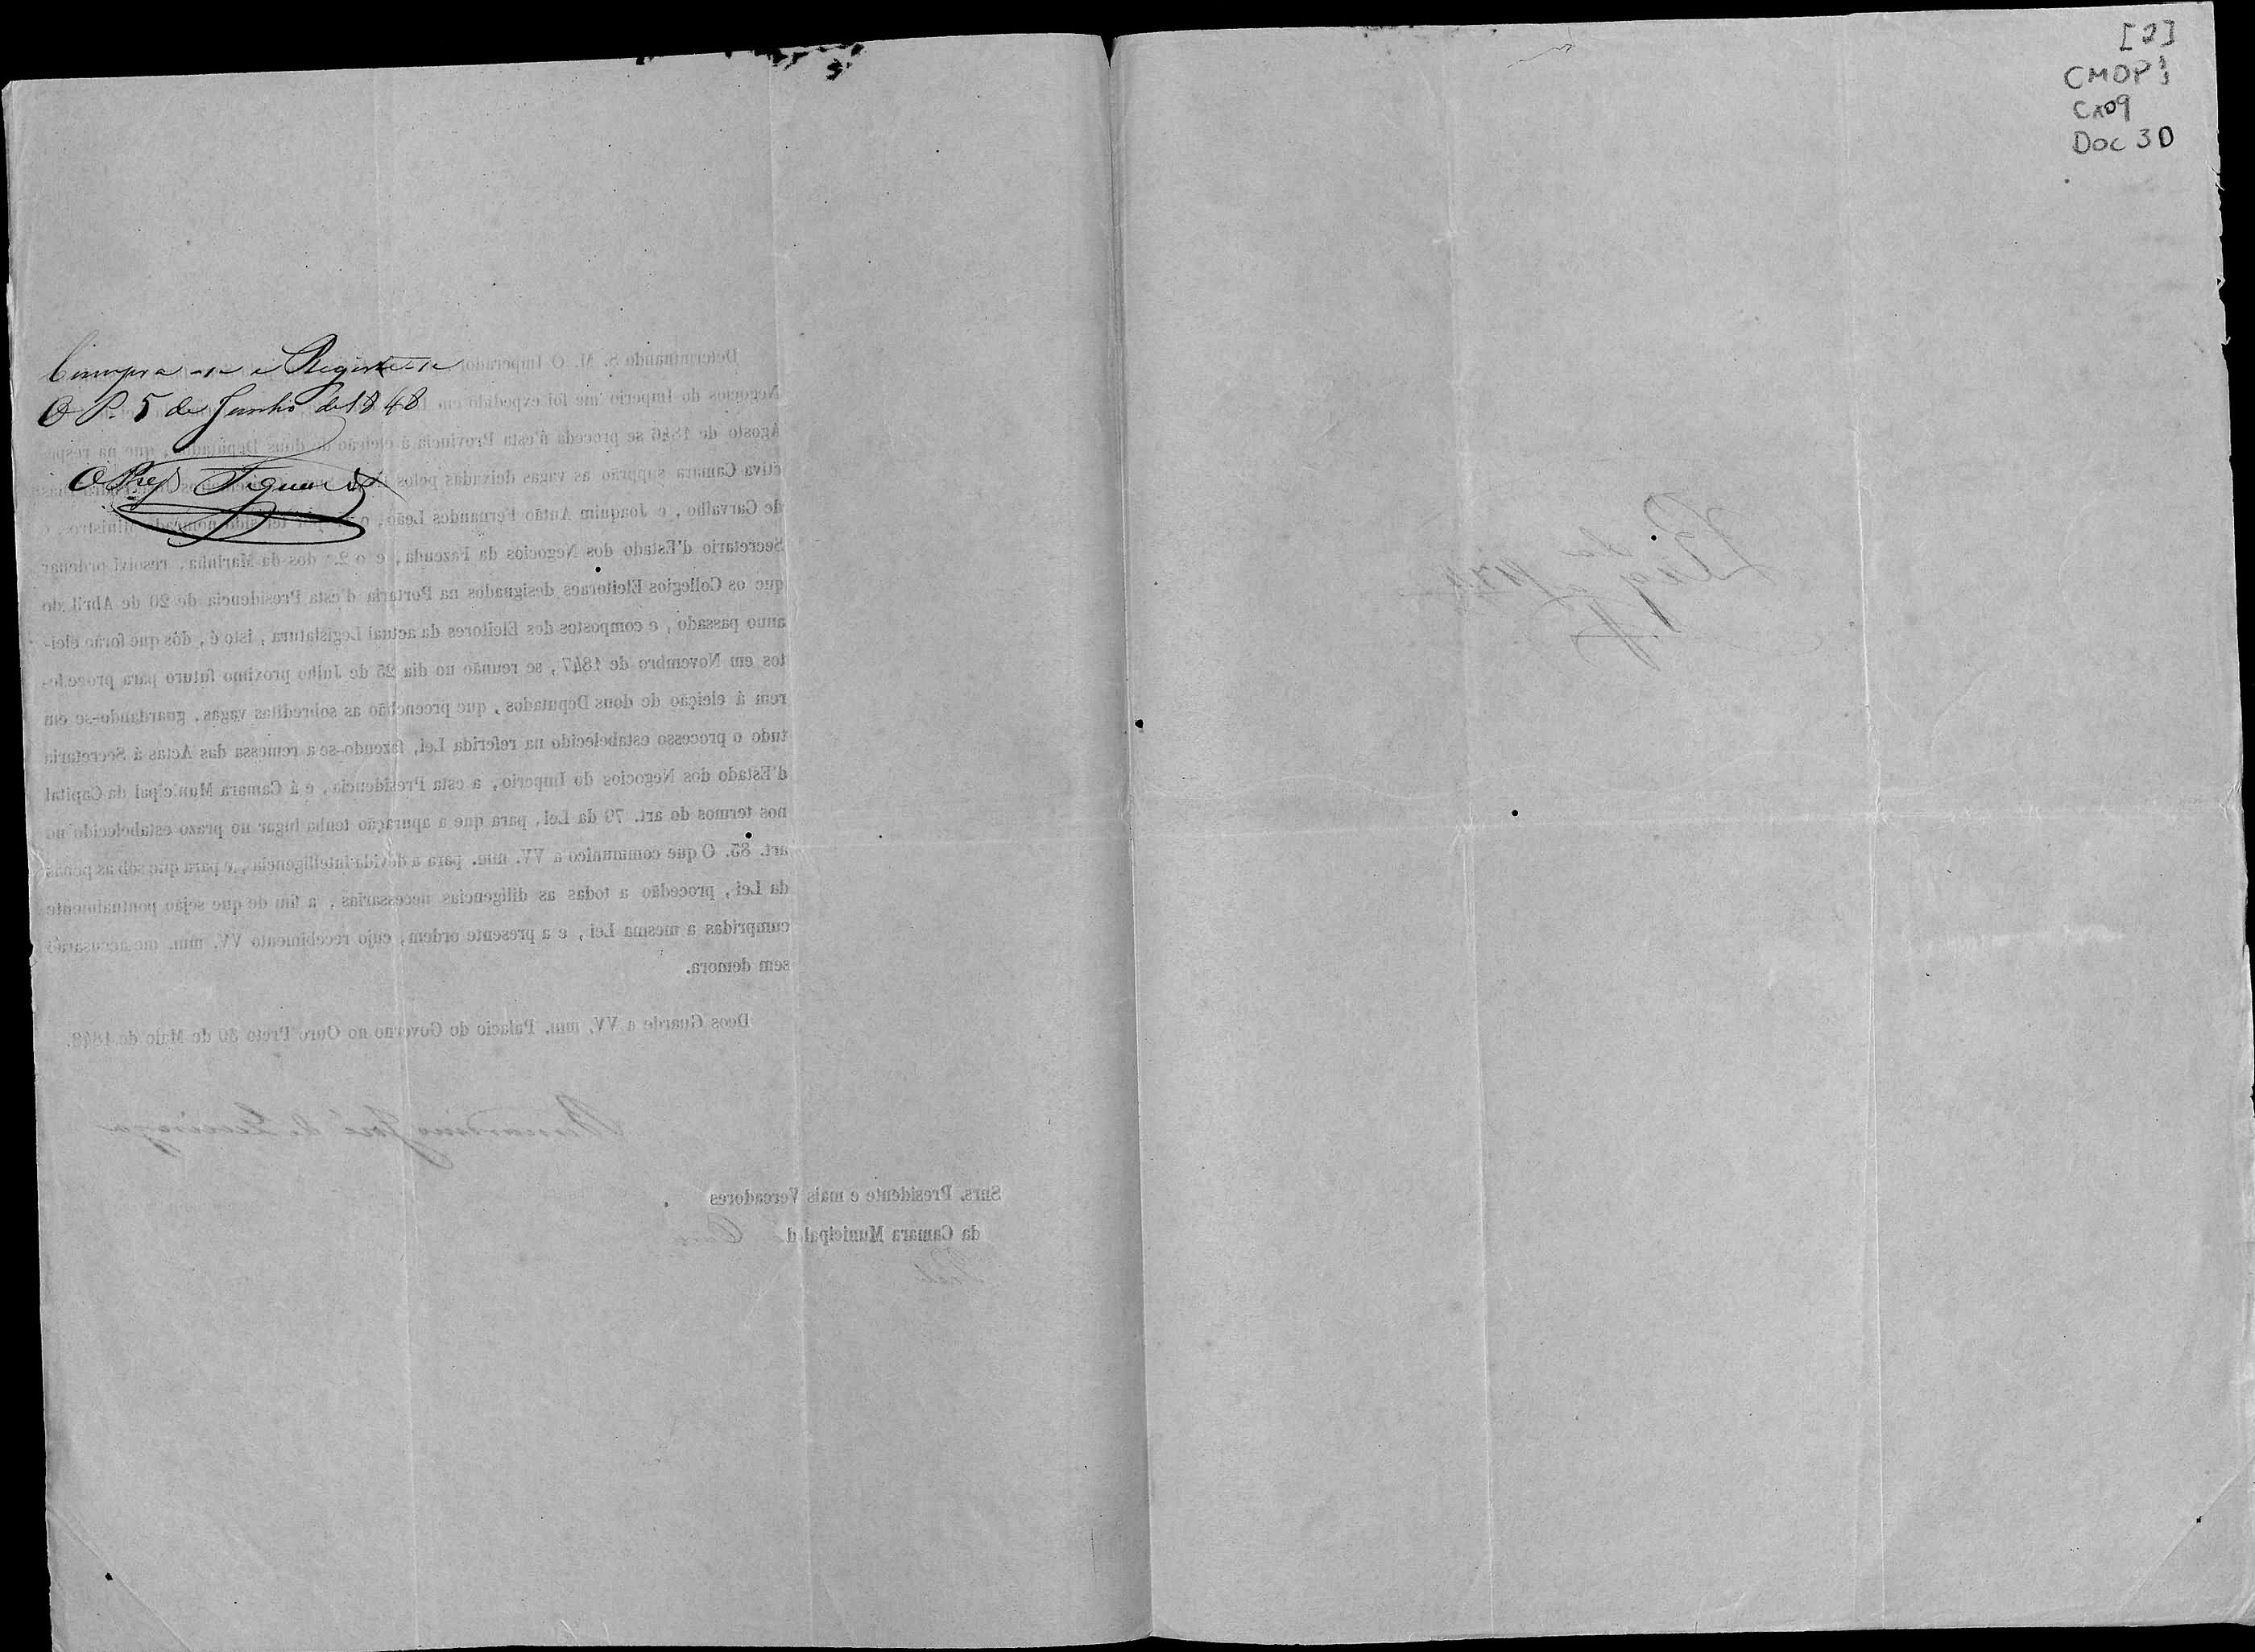 Cumpra-se e Registe-se
O P. 5 de Junho de 1848
O Prez
Determinando S. M. O Imperador
Negocios do Imperio me foi expedido em
Agosto de 1846 se proceda n'esta Provincia á eleição de dous Deputados, que na respe-
ctiva Camara supprão as vagas deixadas pelos
de Carvalho, e Joaquim Antão Fernandes Leão, nomeado Ministro, e
Secretario d'Estado dos Negocios da Fazenda, e o 2.º dos da Marinha, resolvi ordenar
que os Collegios Eleitoraes designados na Portaria d'esta Presidencia de 20 de Abril do
anno passado, e compostos dos Eleitores da actual Legislatura, isto é, dos que forão elei-
tos em Novembro de 1847, se reunão no dia 25 de Julho proximo futuro para procede-
rem á eleição de dous Deputados, que preenchão as sobreditas vagas, guardando-se em
tudo o processo estabelecido na referida Lei, fazendo-se a remessa das Actas á Secretaria
d'Estado dos Negocios do Imperio, a esta Presidencia, e á Camara Municipal da Capital
nos termos do art. 79 da Lei, para que a apuração tenha lugar no prazo estabelecido no
art. 85. O que communico a VV. mm. para a devida intelligencia, e para que sob as penas
da Lei, procedão a todas as diligencias necessarias, a fim de que sejão pontualmente
cumpridas a mesma Lei, e a presente ordem, cujo recebimento VV. mm. me accusaráõ
sem demora.
Deos Guarde a VV. mm. Palacio do Governo no Ouro Preto 30 de Maio de 1848.
Bernardino José de Queiroga
Snrs. Presidente e mais Vereadores
da Camara Municipal d
[2]
CMOP
CX09
Doc 30